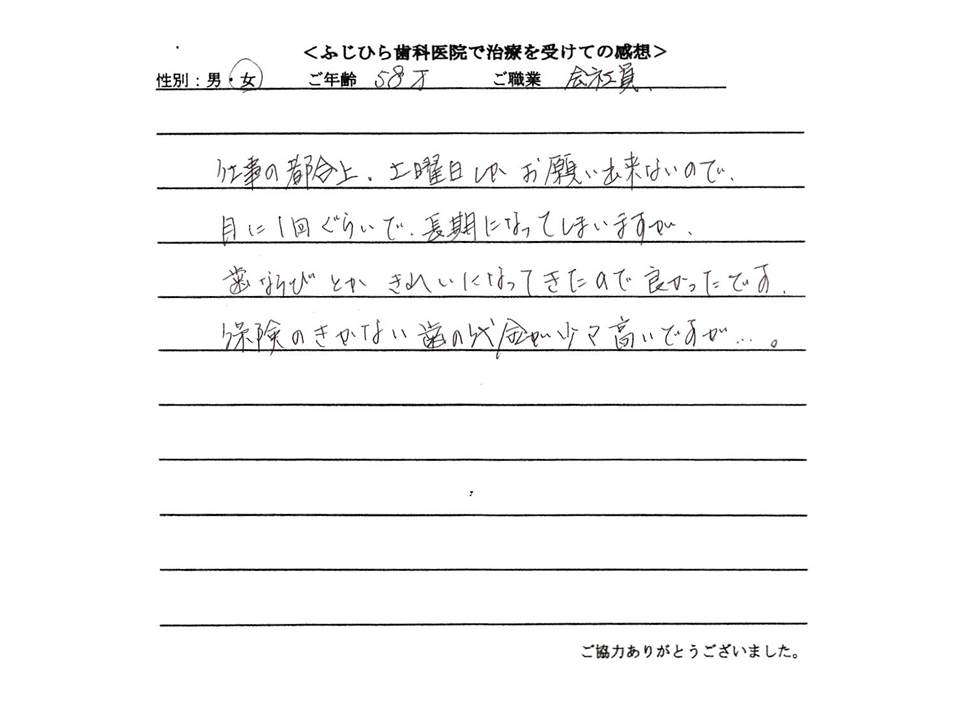 ＜ふじひら歯科医院で治療を受けての感想＞
性別：男・女 ご年齢 58才 ご職業 会社員
仕事の都合上、土曜日しか お願い出来ないので、
月に1回ぐらいで、長期になってしまいますが、
歯ならびとか きれいになってきたので良かったです。
保険のきかない歯の代金が少々高いですが…。
ご協力ありがとうございました。